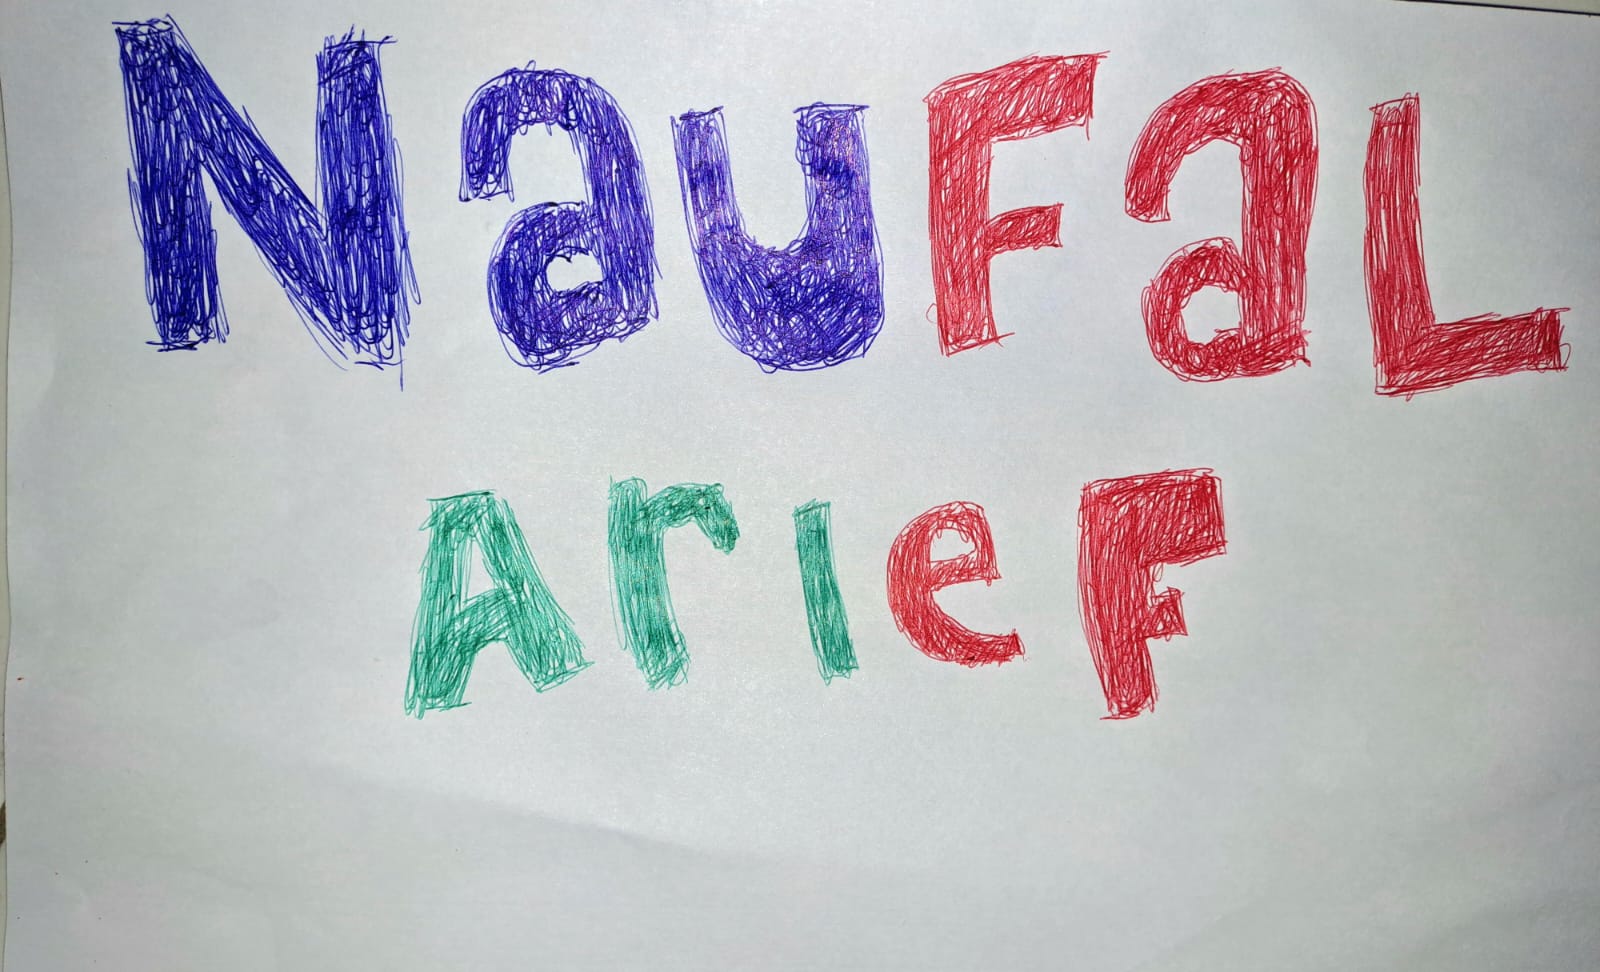 NauFaL
ArIeF